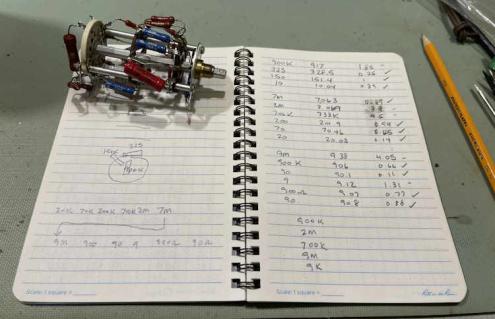 325
100K
20K 70K 200K 700K 2M 7M
9K 900 90 9 900Ω 90Ω
Scale: 1 square =
900K 917 1.88 -
325 325.8 0.25 ✓
150 151.4 ✓
10 10.04 ✓
7M 7.063
2M
700K 733K
200 200.9 ✓
70 70.46 0.65 ✓
20 20.03 0.14 ✓
9M 9.38 4.05 -
900K 906 0.66 ✓
90 90.1 0.11 ✓
9 9.12 1.31 -
900Ω 9.07 0.77 ✓
90 90.8 0.88 ✓
900K
2M
700K
9M
9K
Scale: 1 square =